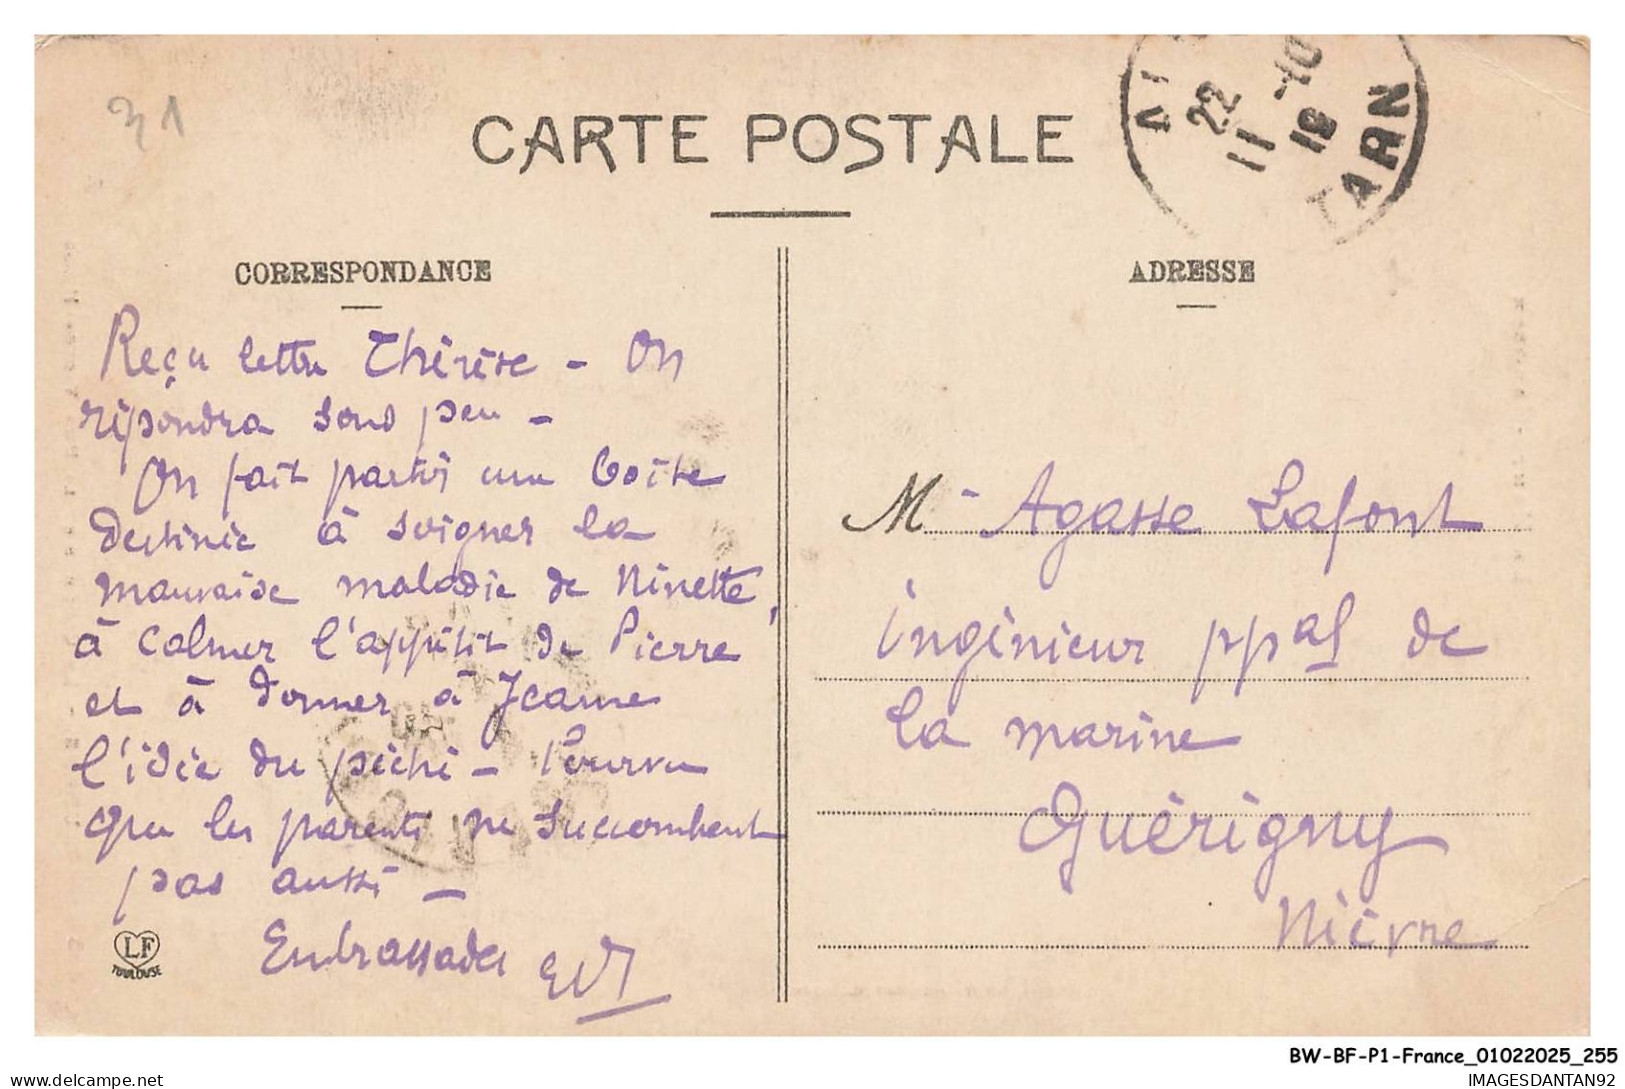 31
CARTE POSTALE
22
11 -10
12
TARN
CORRESPONDANCE
Reçu lettre Thérèse - On
répondra sous peu -
On fait partir une boîte
destinée à soigner la
mauvaise maladie de Ninette,
à calmer l'appétit de Pierre
et à donner à Jeanne
l'idée du péché - Pourvu
que les parents ne succombent
pas aussi -
Embrassades
LF
TOULOUSE
ADRESSE
M - Agasse Lafont
ingénieur ppal de
la marine
Guérigny
Nièvre
BW-BF-P1-France_01022025_255
IMAGESDANTAN92